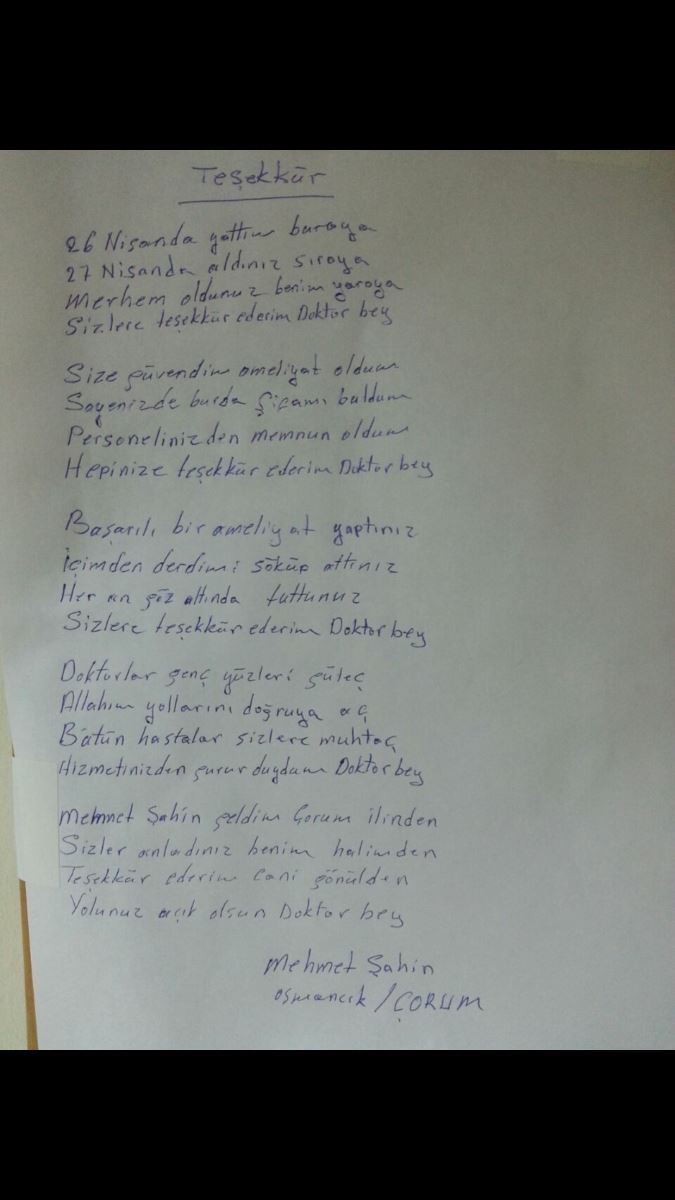 Teşekkür
26 Nisanda yattım buraya
27 Nisanda aldınız sıraya
Merhem oldunuz benim yaraya
Sizlere teşekkür ederim Doktor bey
Size güvendim ameliyat oldum
Sayenizde burda şifamı buldum
Personelinizden memnun oldum
Hepinize teşekkür ederim Doktor bey
Başarılı bir ameliyat yaptınız
İçimden derdimi söküp attınız
Her an göz altında tuttunuz
Sizlere teşekkür ederim Doktor bey
Doktorlar genç yüzleri güleç
Allahım yollarını doğruya aç
Bütün hastalar sizlere muhtaç
Hizmetinizden gurur duydum Doktor bey
Mehmet Şahin geldim Çorum ilinden
Sizler anladınız benim halimden
Teşekkür ederim cani gönülden
Yolunuz açık olsun Doktor bey
Mehmet Şahin
Osmancık / ÇORUM